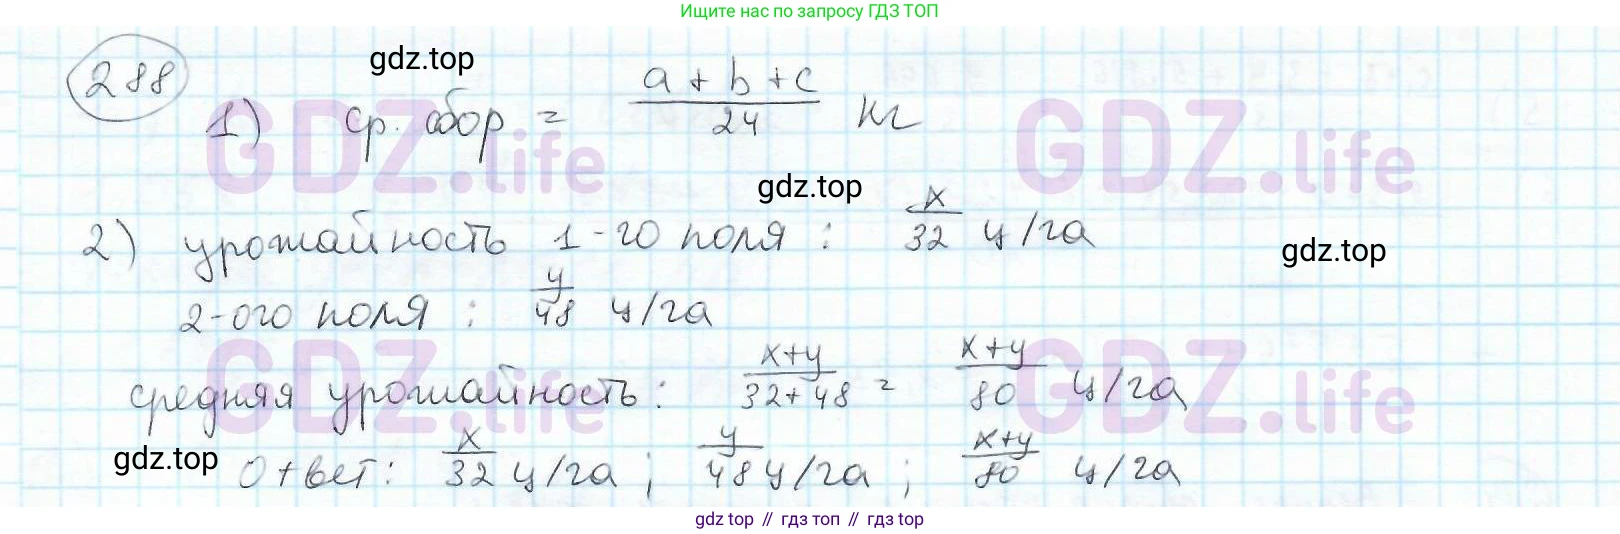 Ищите нас по запросу ГДЗ ТОП
288
gdz.top
1) ср. сбор = (a + b + c)/24 кг
GDZ.life GDZ.life
gdz.top
2) урожайность 1-го поля : x/32 ц/га
gdz.top
2-ого поля : y/48 ц/га
GDZ.life GDZ.life
средняя урожайность: (x+y)/(32+48) = (x+y)/80 ц/га
gdz.top
Ответ: x/32 ц/га ; y/48 ц/га ; (x+y)/80 ц/га
gdz top // гдз топ // гдз top